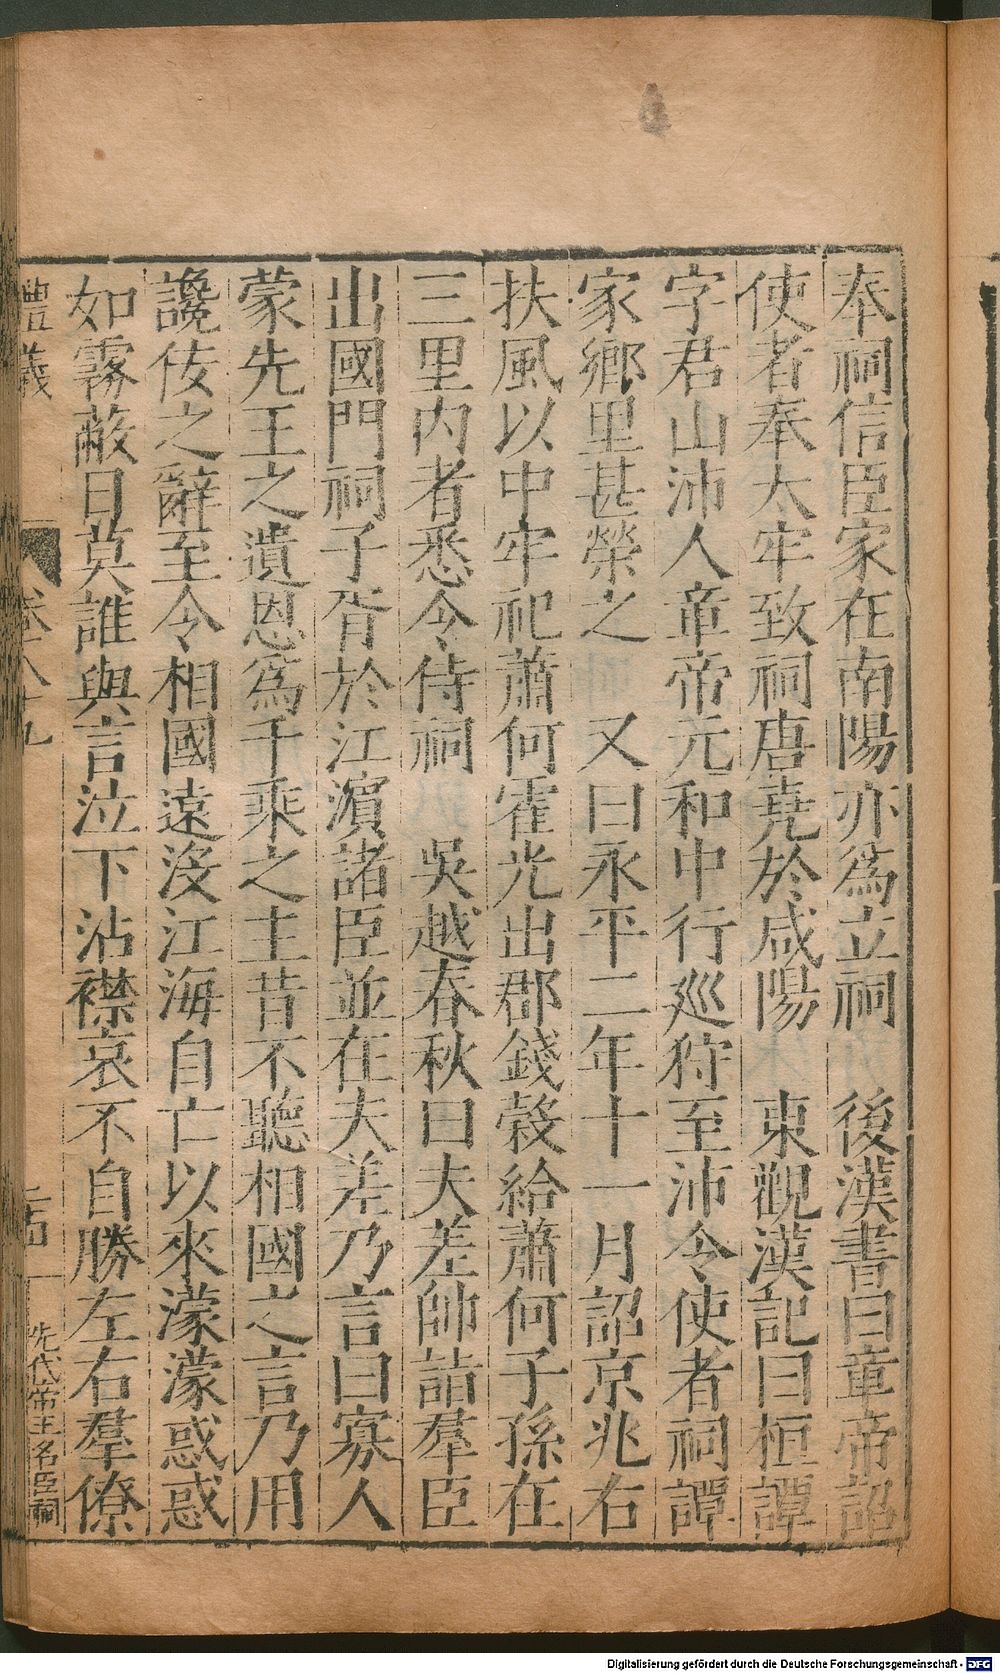 奉祠信臣家在南陽亦爲立祠　後漢書曰章帝詔
使者奉太牢致祠唐堯於咸陽　東觀漢記曰桓譚
字君山沛人章帝元和中行巡狩至沛令使者祠譚
家鄉里甚榮之　又曰永平二年十一月詔京兆右
扶風以中牢祀蕭何霍光出郡錢穀給蕭何子孫在
三里内者悉令侍祠　吳越春秋曰夫差師詰羣臣
出國門祠子胥於江濵諸臣並在夫差乃言曰寡人
蒙先王之遺恩爲千乘之主昔不聽相國之言乃用
讒佞之辭至令相國遠沒江海自亡以來濛濛惑惑
如霧蔽日莫誰與言泣下沾襟哀不自勝左右羣僚
禮儀　卷八十九　二十四　先代帝王名臣祠
Digitalisierung gefördert durch die Deutsche Forschungsgemeinschaft - DFG